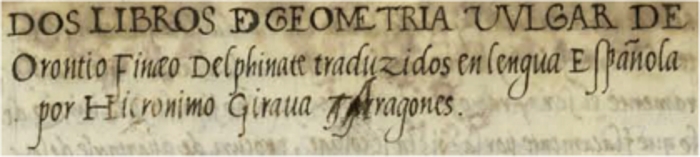 DOS LIBROS DE GEOMETRIA VVLGAR DE
Orontio Finæo Delphinate traduzidos en lengua Española
por Hieronimo Giraua Tarragones.